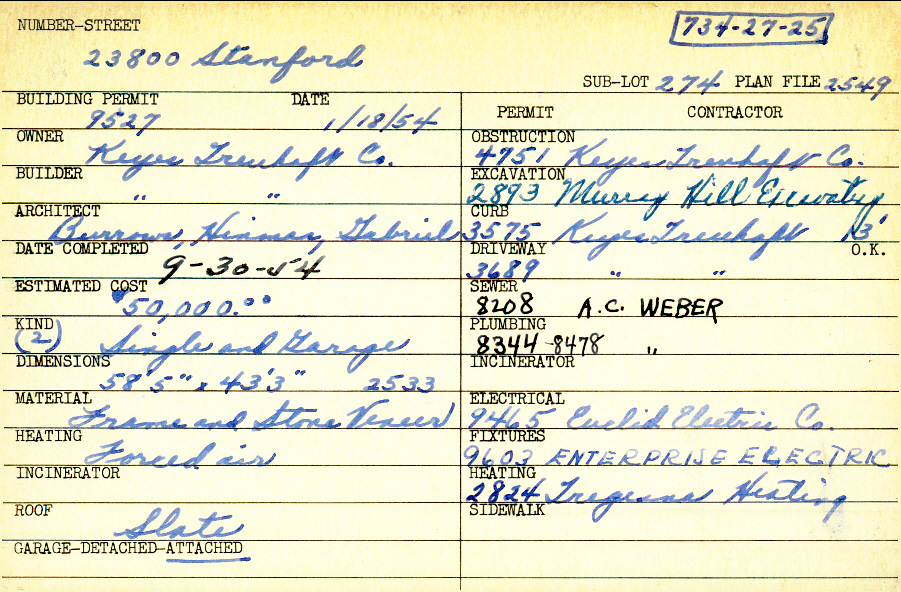 NUMBER-STREET
734-27-25
23800 Stanford
SUB-LOT 274 PLAN FILE 2549
BUILDING PERMIT DATE
9527 1/18/54
OWNER
Keyes Treuhaft Co.
BUILDER
" "
ARCHITECT
Burrows, Hinman, Gabriel
DATE COMPLETED
9-30-54
ESTIMATED COST
$50,000.00
KIND
(2) Single and Garage
DIMENSIONS
58'5" x 43'3" 2533
MATERIAL
Frame and Stone Veneer
HEATING
Forced air
INCINERATOR
ROOF
Slate
GARAGE-DETACHED-ATTACHED
PERMIT CONTRACTOR
OBSTRUCTION
4751 Keyes Treuhaft Co.
EXCAVATION
2893 Murray Hill Excavating
CURB
3575 Keyes Treuhaft 13'
DRIVEWAY O.K.
3689 " "
SEWER
8208 A.C. WEBER
PLUMBING
8344-8478 "
INCINERATOR
ELECTRICAL
9465 Euclid Electric Co.
FIXTURES
9603 ENTERPRISE ELECTRIC
HEATING
2824 Heating
SIDEWALK